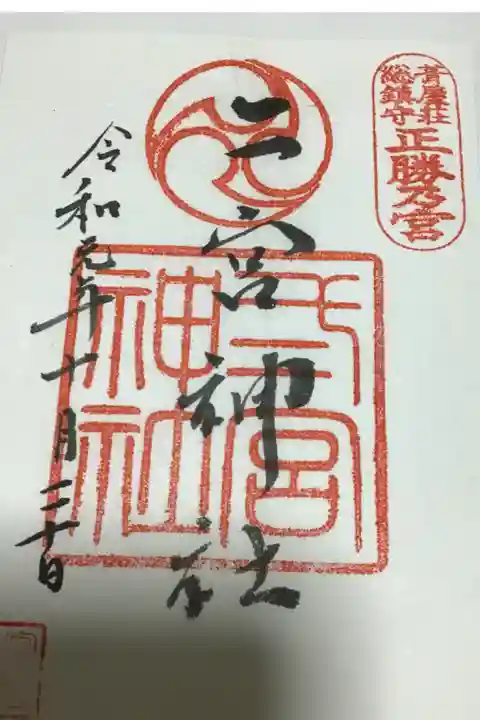 葺屋荘
総鎮守
正勝乃宮
二宮神社
弍宮
神社
令和元年十月三十日